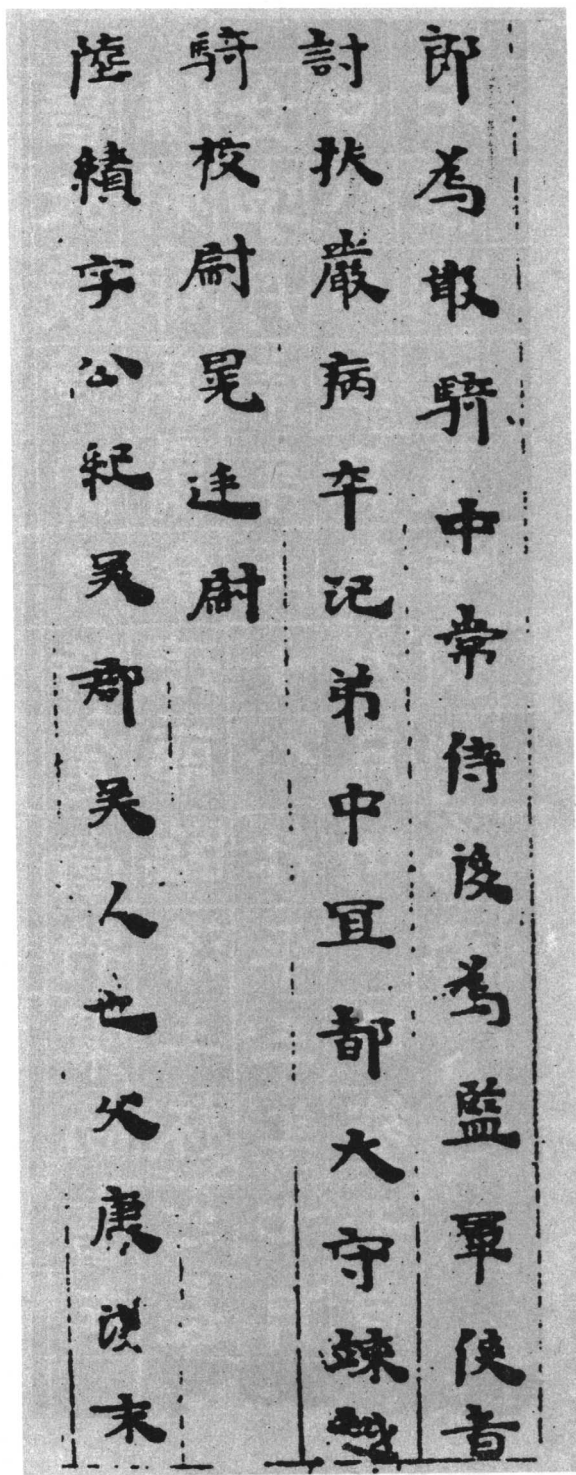 郎為散騎中常侍後為監軍使者
討扶嚴病卒汜弟中冝都太守竦越
騎校尉晃建尉
陸績字公紀吳郡吳人也父康漢末